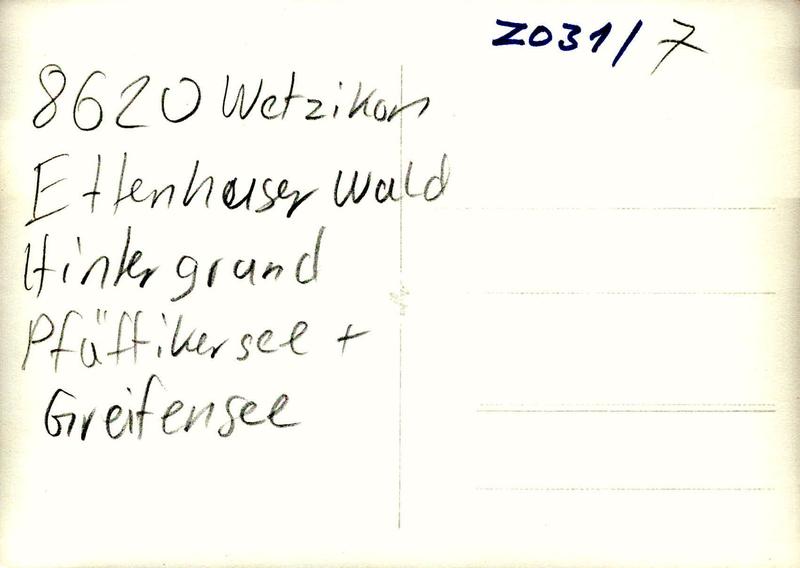 ZO31/7
8620 Wetzikon
Ettenhauser Wald
Hintergrund
Pfäffikersee +
Greifensee